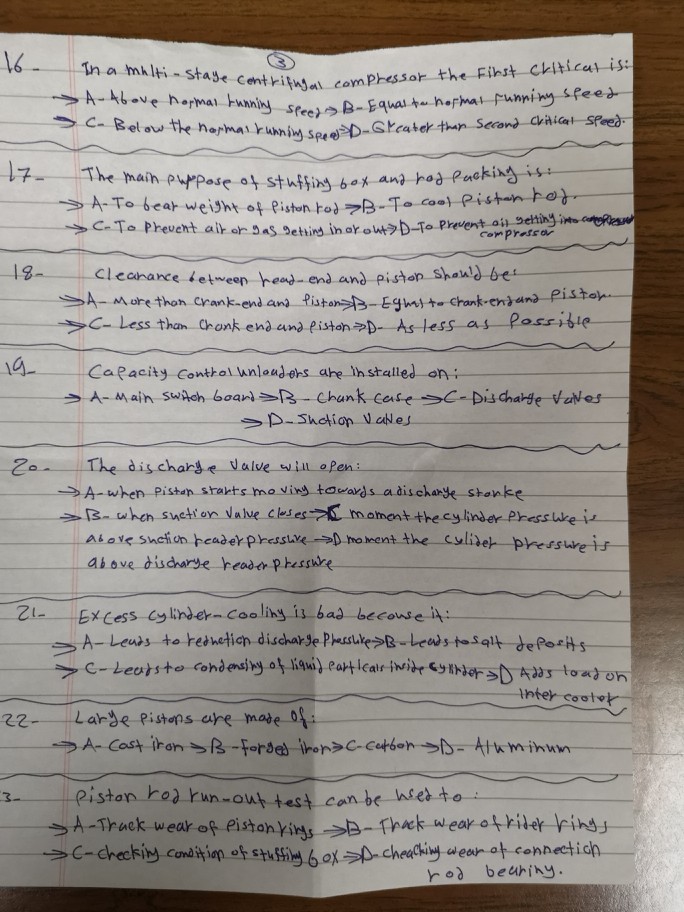 3
16- In a multi-stage centrifugal compressor the First critical is:
→ A- Above normal running speed → B- Equal to normal running speed
→ C- Below the normal running speed → D- Greater than second critical speed.
17- The main purpose of stuffing box and rod packing is:
→ A- To bear weight of Piston rod → B- To cool piston rod.
→ C- To Prevent air or gas getting in or out → D- To Prevent oil getting into
compressor
18- Clearance between head-end and piston should be:
→ A- More than crank-end and Piston → B- Equal to crank-end and Piston.
→ C- Less than Crank end and piston → D- As less as Possible
19- Capacity Control unloaders are installed on:
→ A- Main switch board → B- Chank case → C- Discharge Valves
→ D- Suction Valves
20- The discharge Valve will open:
→ A- when piston starts moving towards a discharge storke
→ B- when suction Valve closes → C moment the cylinder Pressure is
above suction header pressure → D moment the cylider pressure is
above discharge header Pressure
21- Excess cylinder-cooling is bad because it:
→ A- Leads to reduction discharge Pressure → B- Leads to salt deposits
→ C- Leads to condensing of liquid particals inside cylinder → D Adds load on
Inter cooler
22- Large Pistons are made of:
→ A- Cast iron → B- Forged iron → C- carbon → D- Aluminum
3- Piston rod run-out test can be used to:
→ A- Track wear of Piston rings → B- Track wear of rider rings
→ C- checking condition of stuffing box → D- cheaching wear of connection
rod bearing.